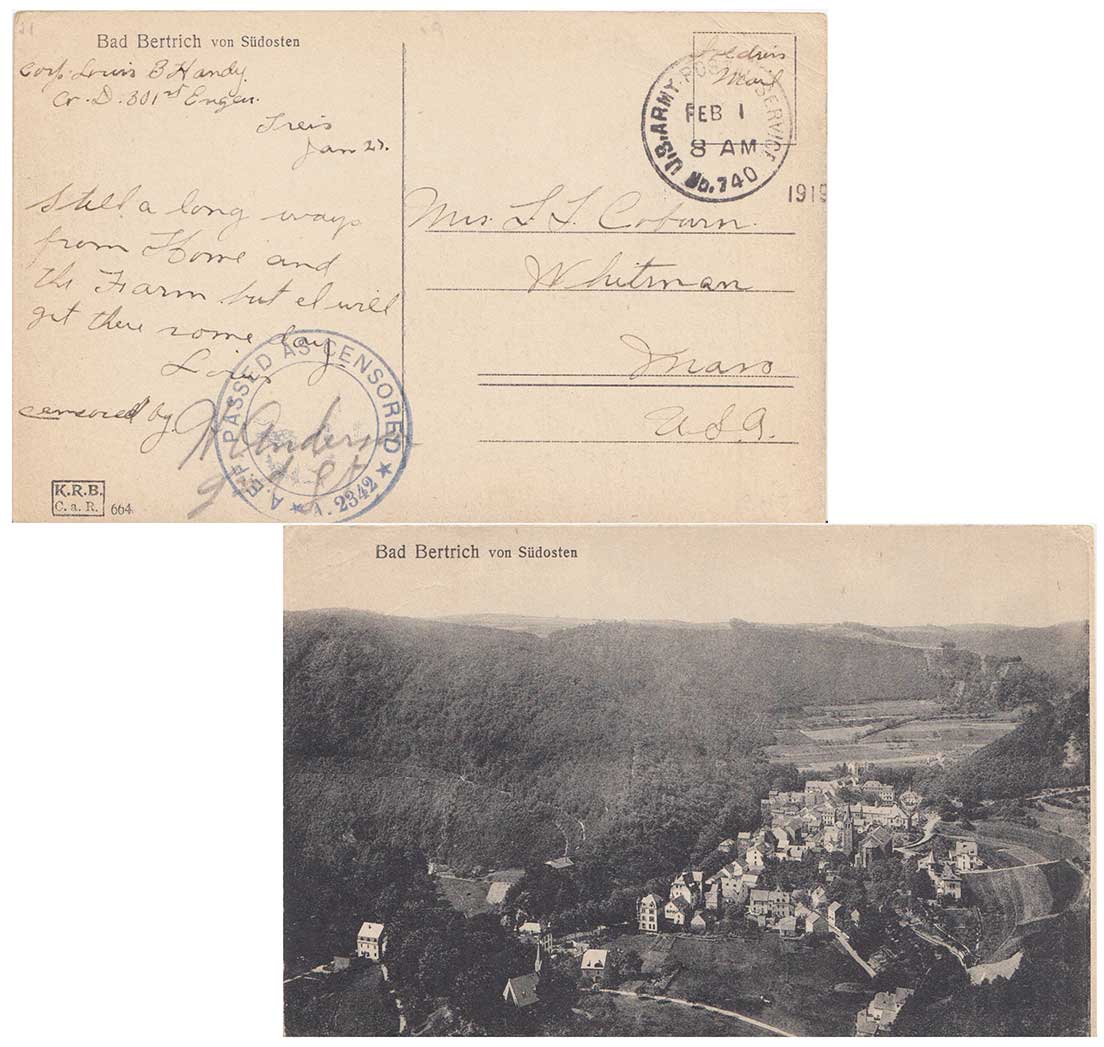 Bad Bertrich von Südosten
Corp. Louis B Handy.
Co. D. 301st Engrs.
Treis
Jan 27.
Still a long ways
from Home and
the Farm but I will
get there some day.
Louis
censored by.
W Anderson
2nd Lt
A.E.F. PASSED AS CENSORED
A. 2342
K.R.B.
C. a. R.
664
Soldiers
Mail
U.S. ARMY. POST SERVICE
FEB 1
8 AM
No. 740
1919
Mrs. L. L. Coburn.
Whitman
Mass
U.S.A.
Bad Bertrich von Südosten